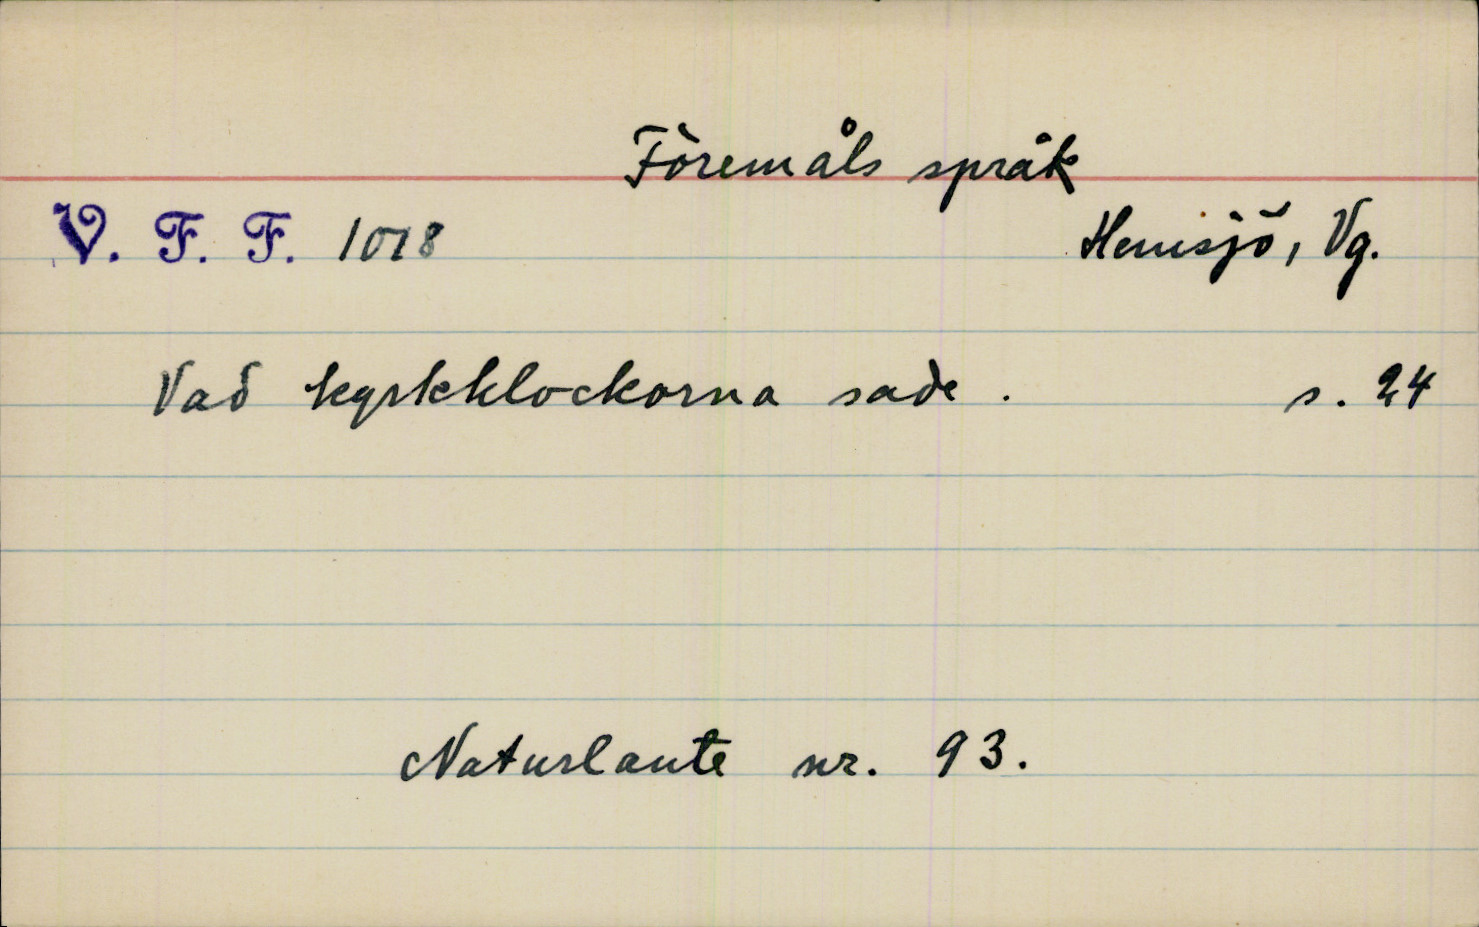 Föremåls språk
V. F. F. 1018 Hemsjö, Vg.
Vad kyrkklockorna sade. s. 24
Naturlaute nr. 93.